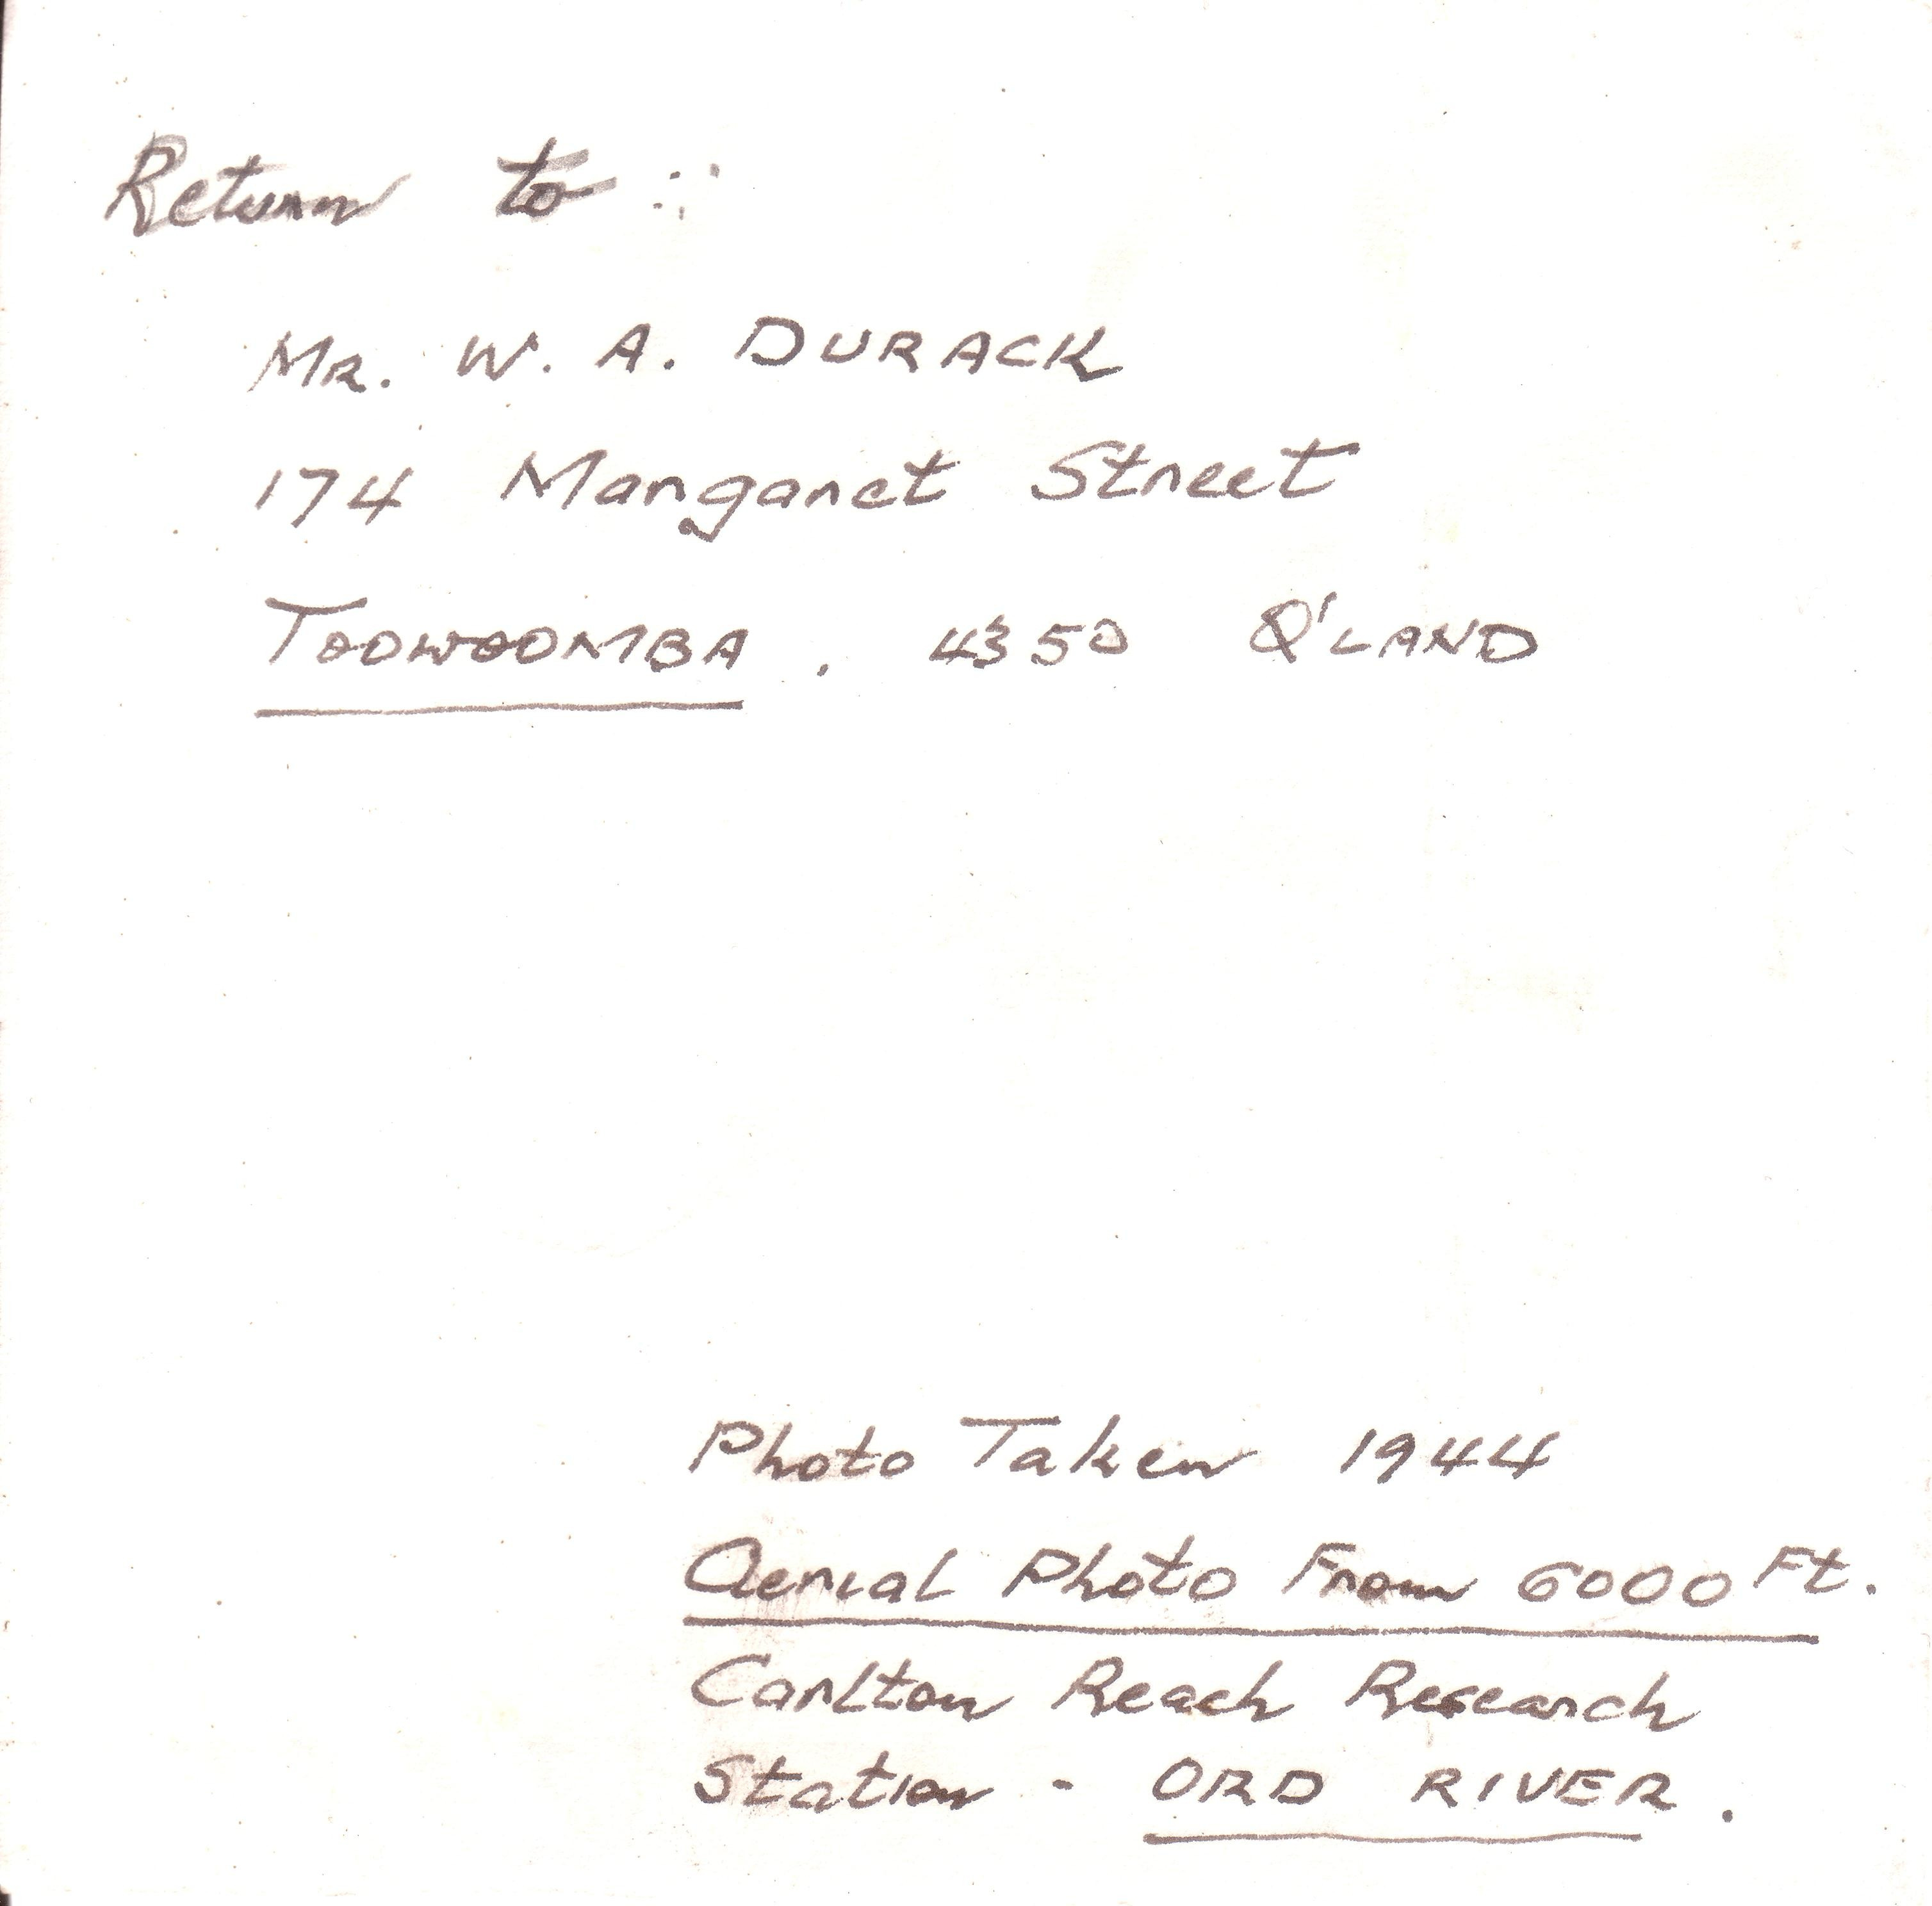 Return to :
Mr. W. A. DURACK
174 Margaret Street
TOOWOOMBA . 4350 Q'LAND
Photo Taken 1944
Aerial Photo From 6000 Ft.
Carlton Reach Research
Station - ORD RIVER.